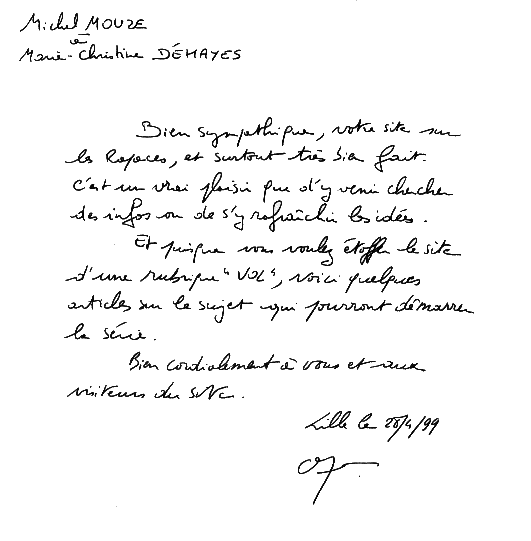 Michel MOUZE
à
Marie-Christine DÉHAYES
Bien sympathique, votre site sur
les Rapaces, et surtout très bien fait.
C'est un vrai plaisir que d'y venir chercher
des infos ou de s'y rafraîchir les idées.
Et puisque vous voulez étoffer le site
d'une rubrique "VOL", voici quelques
articles sur le sujet qui pourront démarrer
la série.
Bien cordialement à vous et aux
visiteurs du site.
Lille le /4/99